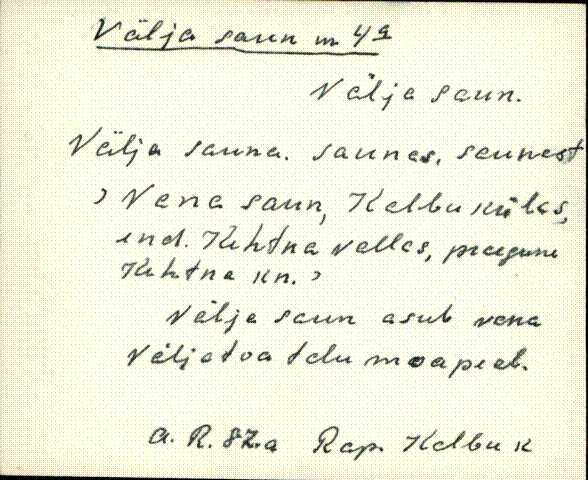 Välja saun m 4a
Välja saun.
Välja sauna. saunas, saunast
› Vana saun, Kalbu külas,
end. Kehtna vallas, praegune
Kehtna kn. ›
Välja saun asub vana
Väljatoa talu moapeal.
A. R. 82.a Rap. Kalbu k